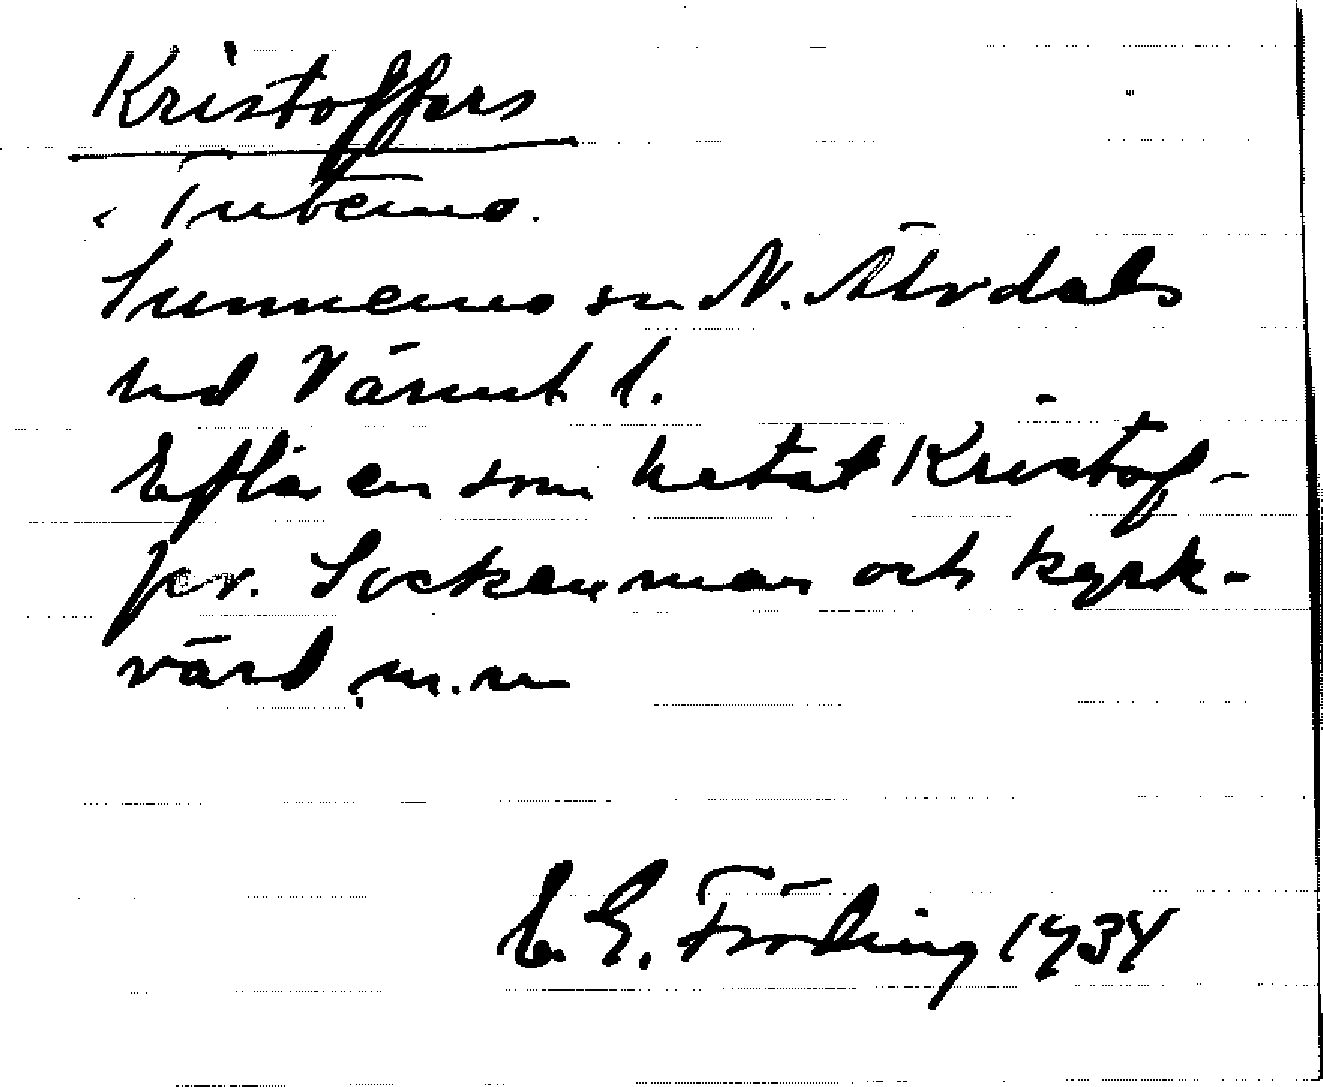 Kristoffers
i Tutemo.
Sunnemo sn N. Älvdals
hd Värml. l.
Efter en som hetat Kristof-
fer. Sockenman och kyrk-
värd m.m
E. G. Fröding 1934